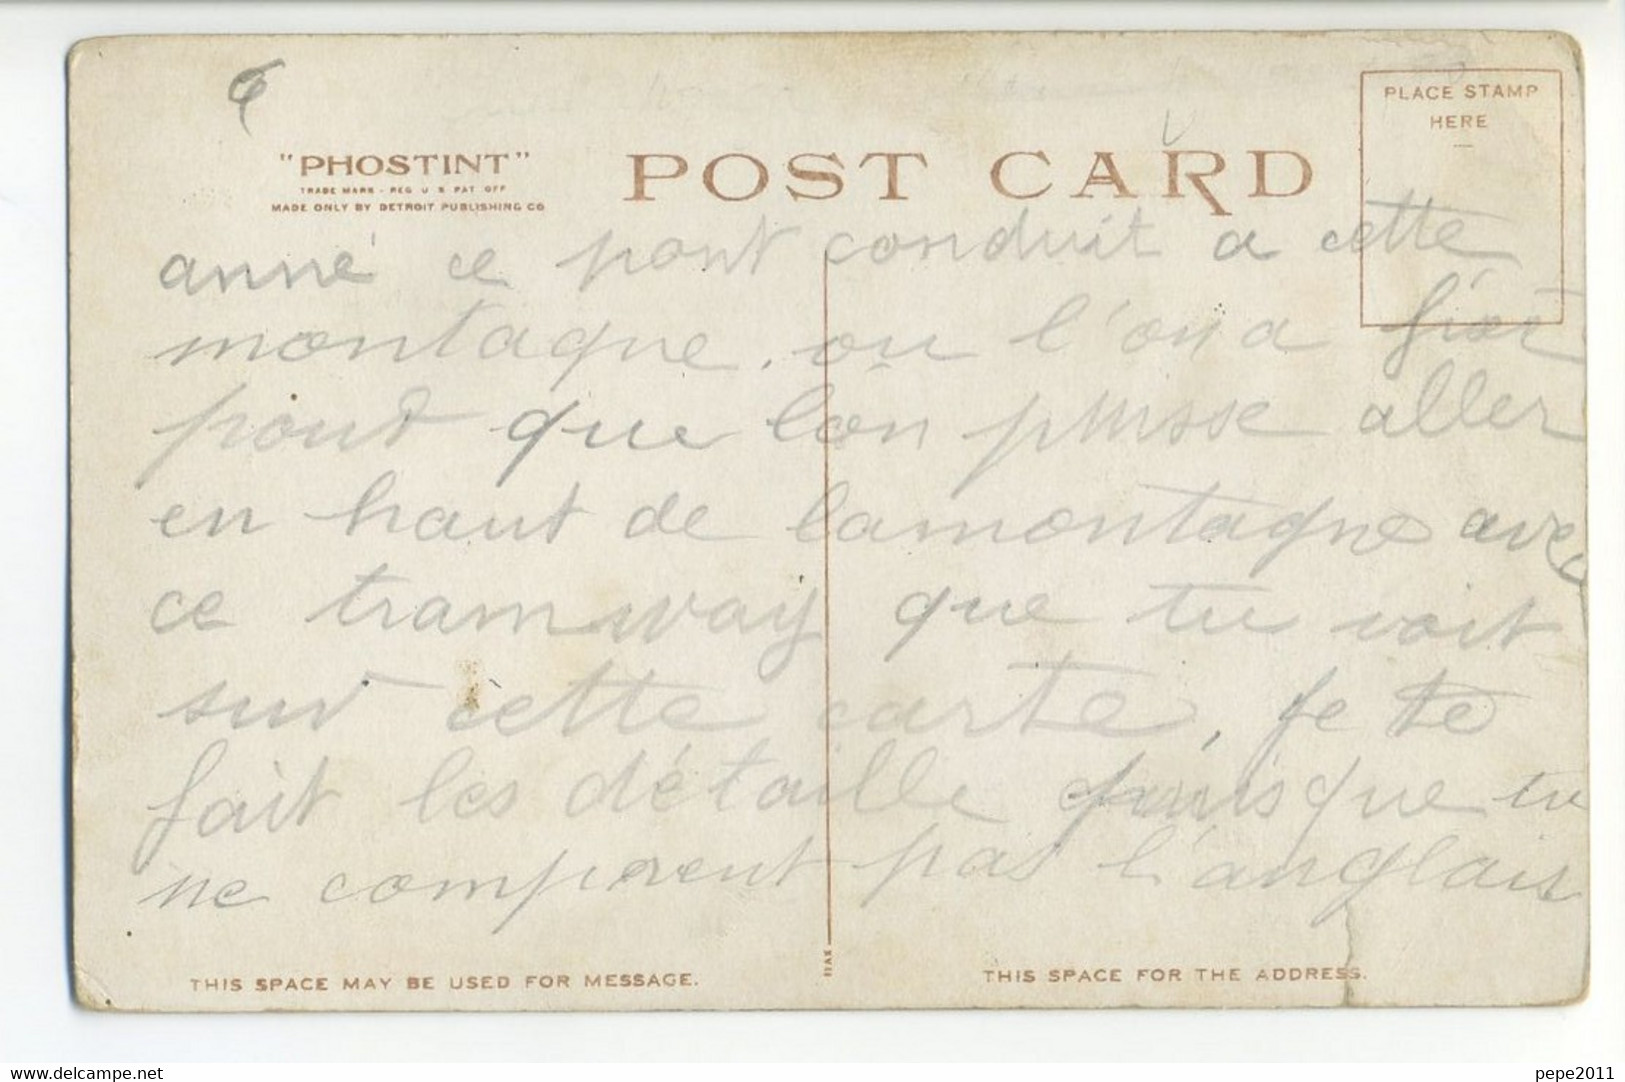 6
PLACE STAMP
HERE
"PHOSTINT"
TRADE MARK - REG U S PAT OFF
MADE ONLY BY DETROIT PUBLISHING CO
POST CARD
anné ce pont conduit a cette
montagne. ou l'on a fait
pout que lon puisse aller
en haut de lamontagne avec
ce tramway que tu voit
sur cette carte, je te
fait les détaille puisque tu
ne comprent pas l'anglais
THIS SPACE MAY BE USED FOR MESSAGE.
THIS SPACE FOR THE ADDRESS.
delcampe.net
pepe2011